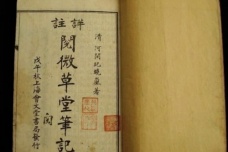 清河間紀曉嵐著
詳註
閱微草堂筆記
戊午秋上海會文堂書局發行